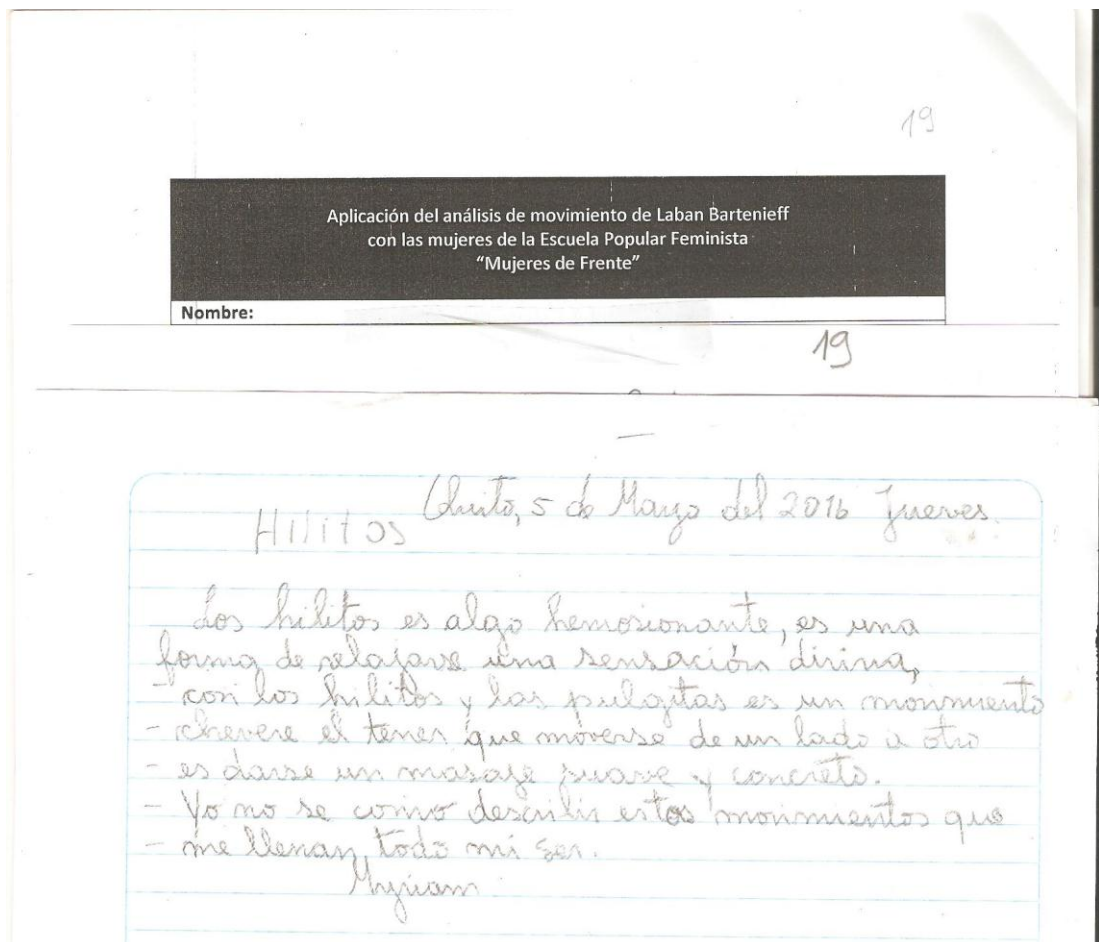 19
Aplicación del análisis de movimiento de Laban Bartenieff
con las mujeres de la Escuela Popular Feminista
“Mujeres de Frente”
Nombre:
19
Quito, 5 de Mayo del 2016 Jueves.
Hilitos
Los hilitos es algo hemosionante, es una
forma de relajarse una sensación divina,
- con los hilitos y las pulgitas es un movimiento
- chevere el tener que moverse de un lado a otro
- es darse un masaje suave y concreto.
- Yo no se como describir estos movimientos que
- me llenan todo mi ser.
Myriam